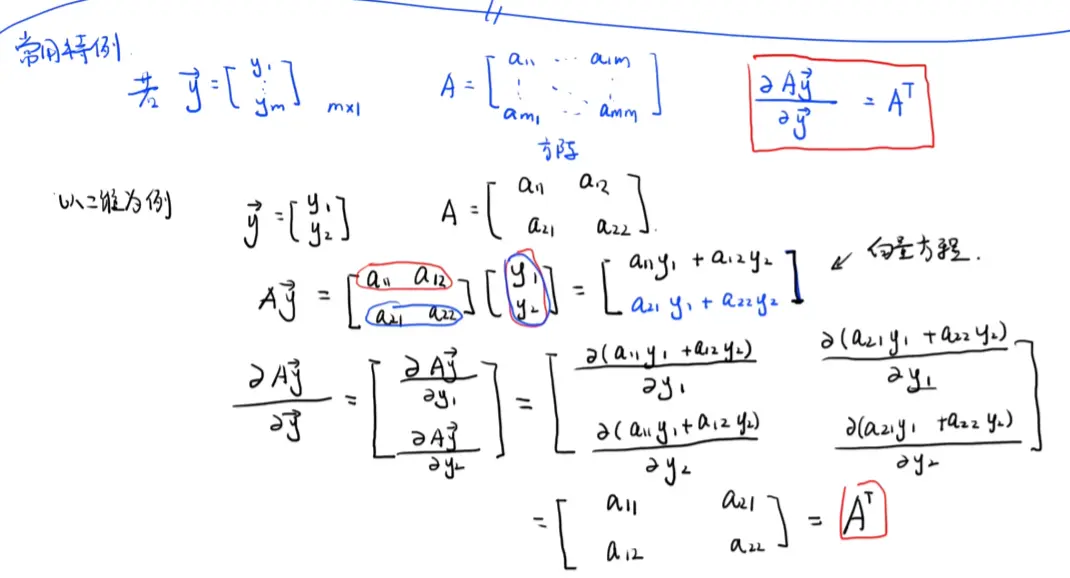 常用特例
若 y⃗ = [y₁ ⋮ yₘ] m×1 A = [a₁₁ ⋯ a₁ₘ ⋮ ⋱ ⋮ aₘ₁ ⋯ aₘₘ] ∂Ay⃗/∂y⃗ = Aᵀ
方阵
以二维为例 y⃗ = [y₁ y₂] A = [a₁₁ a₁₂ a₂₁ a₂₂]
Ay⃗ = [a₁₁ a₁₂ a₂₁ a₂₂] [y₁ y₂] = [a₁₁y₁ + a₁₂y₂ a₂₁y₁ + a₂₂y₂] ↙ 向量方程.
∂Ay⃗/∂y⃗ = [∂Ay⃗/∂y₁ ∂Ay⃗/∂y₂] = [∂(a₁₁y₁ + a₁₂y₂)/∂y₁ ∂(a₂₁y₁ + a₂₂y₂)/∂y₁ ∂(a₁₁y₁ + a₁₂y₂)/∂y₂ ∂(a₂₁y₁ + a₂₂y₂)/∂y₂]
= [a₁₁ a₂₁ a₁₂ a₂₂] = Aᵀ